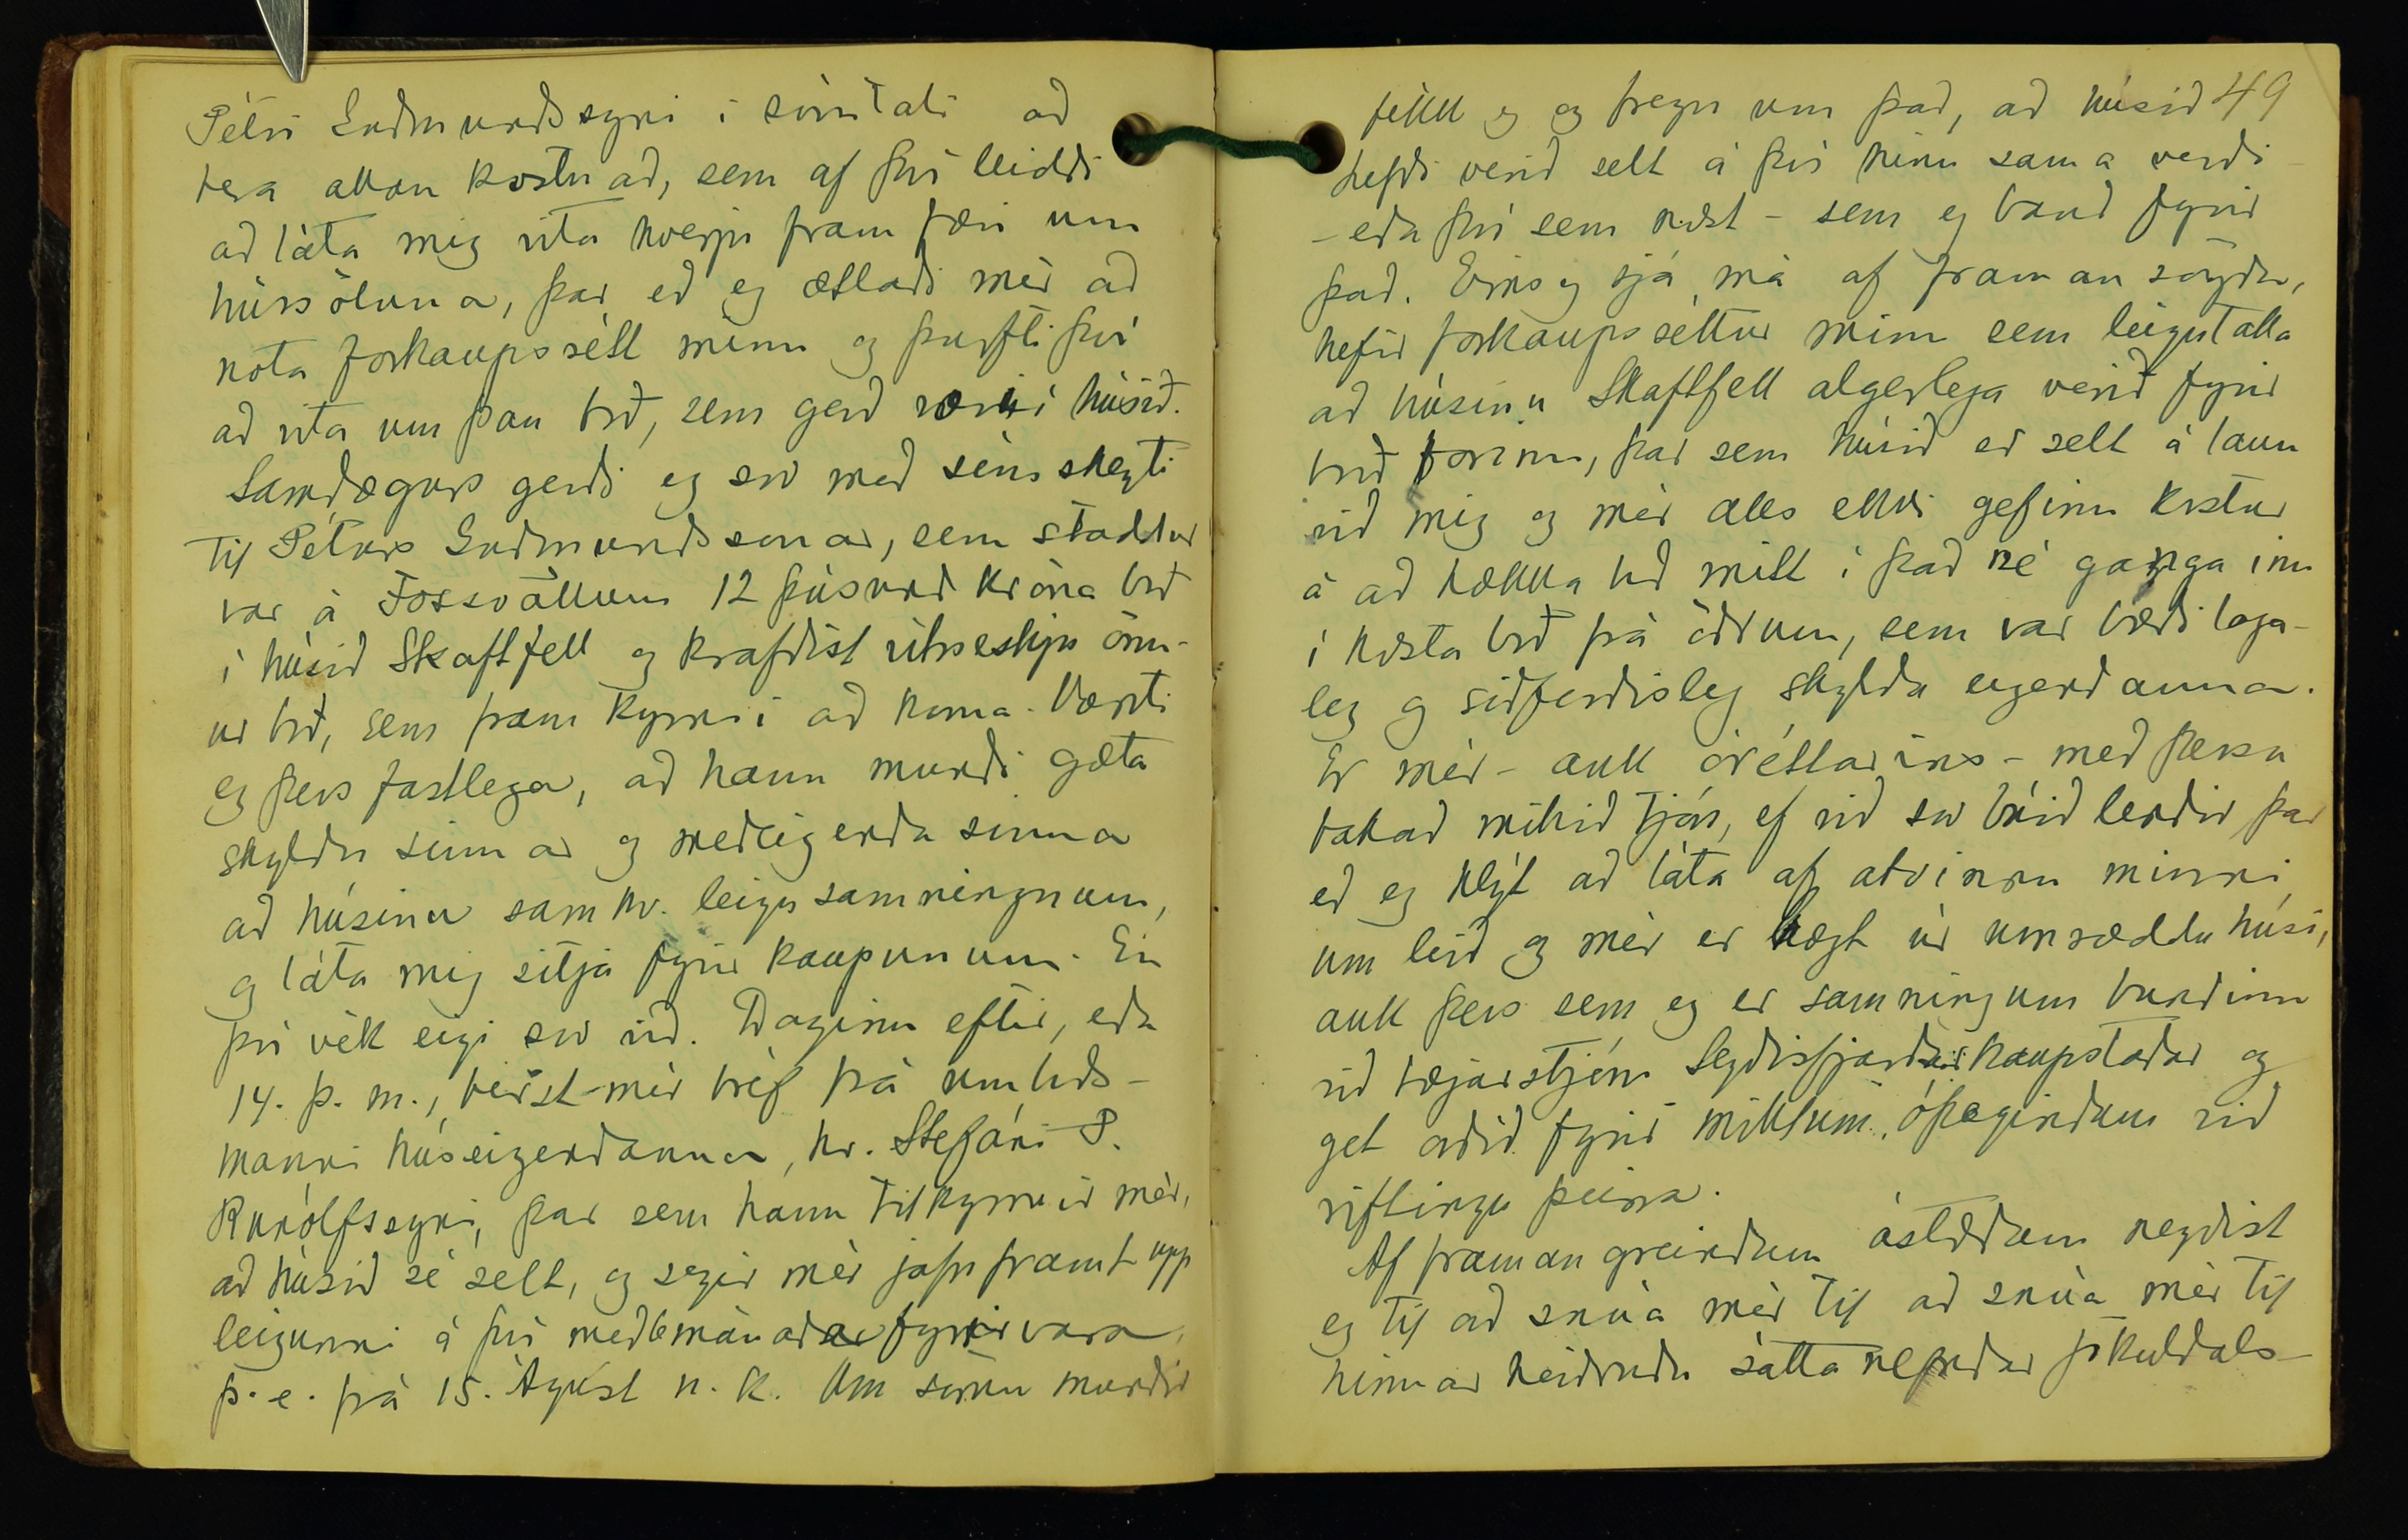 Pétri Guðmundssyni i símtali að
bera allan kostnað, sem af því leiddi
að láta mig vita hverju fram færi um
hússöluna, þar eð eg ætlaði mér að
nota forkaupsrétt minn og þurfti því
að vita um þau boð, sem gerð væri í húsið.
Samdægurs gerði eg svo með símskeyti
til Péturs Guðmundssonar, sem staddur
var á Fossvöllum 12 þúsund króna boð
í húsið Skaftfell og krafðist vitneskju önn-
ur boð, sem fram kynni að koma. Vænti
eg þess fastlega, að hann mundi gæta
skyldu sinnar og meðeigenda sinna
að húsinu samkv. leigusamningnum,
og láta mig sitja fyrir kaupunum. En
því vék eigi svo við. Daginn eftir, eða
14. þ. m., berst mér bréf frá umboðs-
manni húseigendanna, hr. Stefáni P.
Runólfssyni, þar sem hann tilkynnir mér,
að húsið sé selt, og segir mér jafnframt upp
leigunni á því með 6 mánaða fyrirvara,
þ. e. frá 15. Ágúst n. k. Um sömu mundir
49
fékk eg og fregn um það, að húsið
hefði verið selt á því hinu sama verði
- eða því sem næst - sem eg bauð fyrir
það. Eins og sjá má af framansögðu,
hefir forkaupsréttur minn sem leigutaka
að húsinu Skaftfell algerlega verið fyrir
borð borinn, þar sem húsið er selt á laun
við mig og mér alls ekki gefinn kostur
á að hækka boð mitt í það né ganga inn
í hæsta boð frá öðrum, sem var bæði laga-
leg og siðferðisleg skylda eigendanna.
Er mér - auk óréttarins - með þessu
bakað mikið tjón, ef við svo búið lendir þar
eð eg hlýt að láta af atvinnu minni
um leið og mér er bægt úr umræddu húsi,
auk þess sem eg er samningum bundinn
við bæjarstjórn Seyðisfjarðarkaupstaðar og
get orðið fyrir miklum óþægindum við
riftingu þeirra.
Af framangreindum ástæðum neyðist
eg til að snúa mér til að snúa mér til
hinnar heiðruðu sáttanefndar Jökuldals-